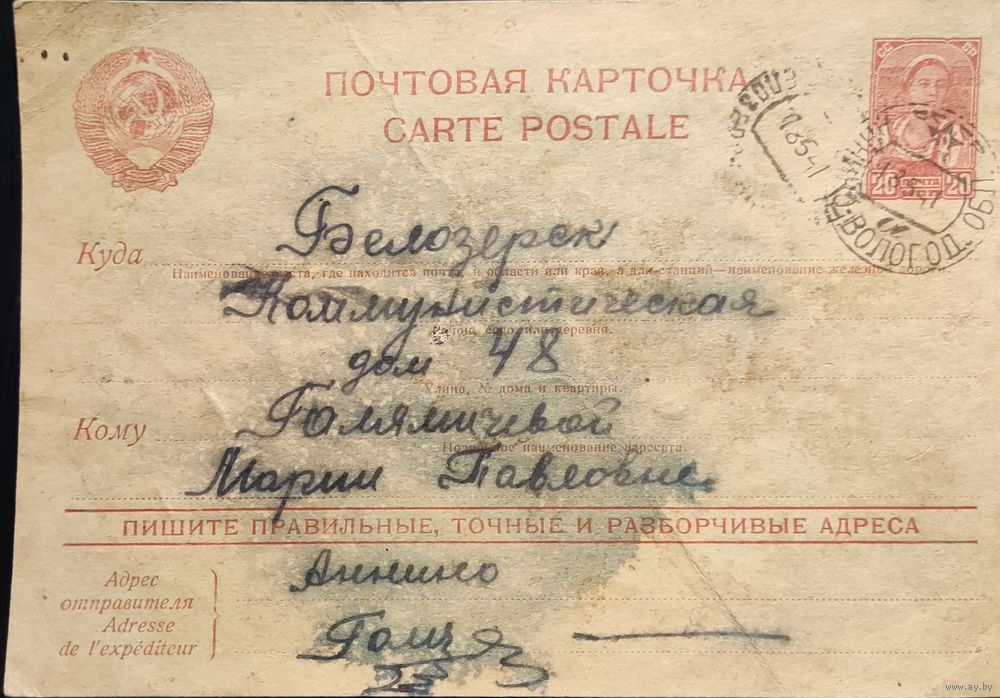 СС СР
ПОЧТОВАЯ КАРТОЧКА
CARTE POSTALE
20 ПОЧТА 20
ВОЛОГОД. ОБЛ.
Куда Белозерск
Наименование места, где находится почта, и области или края, а для станций—наименование железной дороги.
Коммунистическая
Район, село или деревня.
дом 48
Улица, № дома и квартиры.
Кому
Подробное наименование адресата.
Марии Павловне
ПИШИТЕ ПРАВИЛЬНЫЕ, ТОЧНЫЕ И РАЗБОРЧИВЫЕ АДРЕСА
Адрес отправителя
Adresse de l'expéditeur
Аннино
www.ay.by